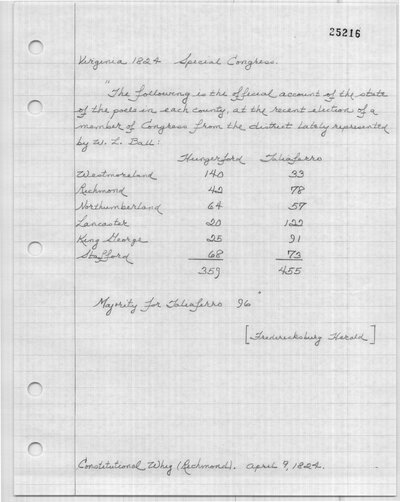 25216
Virginia 1824 Special Congress.
"The following is the official account of the state
of the poles in each county, at the recent election of a
member of Congress from the district lately represented
by W. L. Ball:
Hungerford Taliaferro
Westmoreland 140 33
Richmond 42 78
Northumberland 64 57
Lancaster 20 122
King George 25 91
Stafford 68 73
359 455
Majority for Taliaferro 96
[Fredericksburg Herald]
Constitutional Whig (Richmond). April 9, 1824.